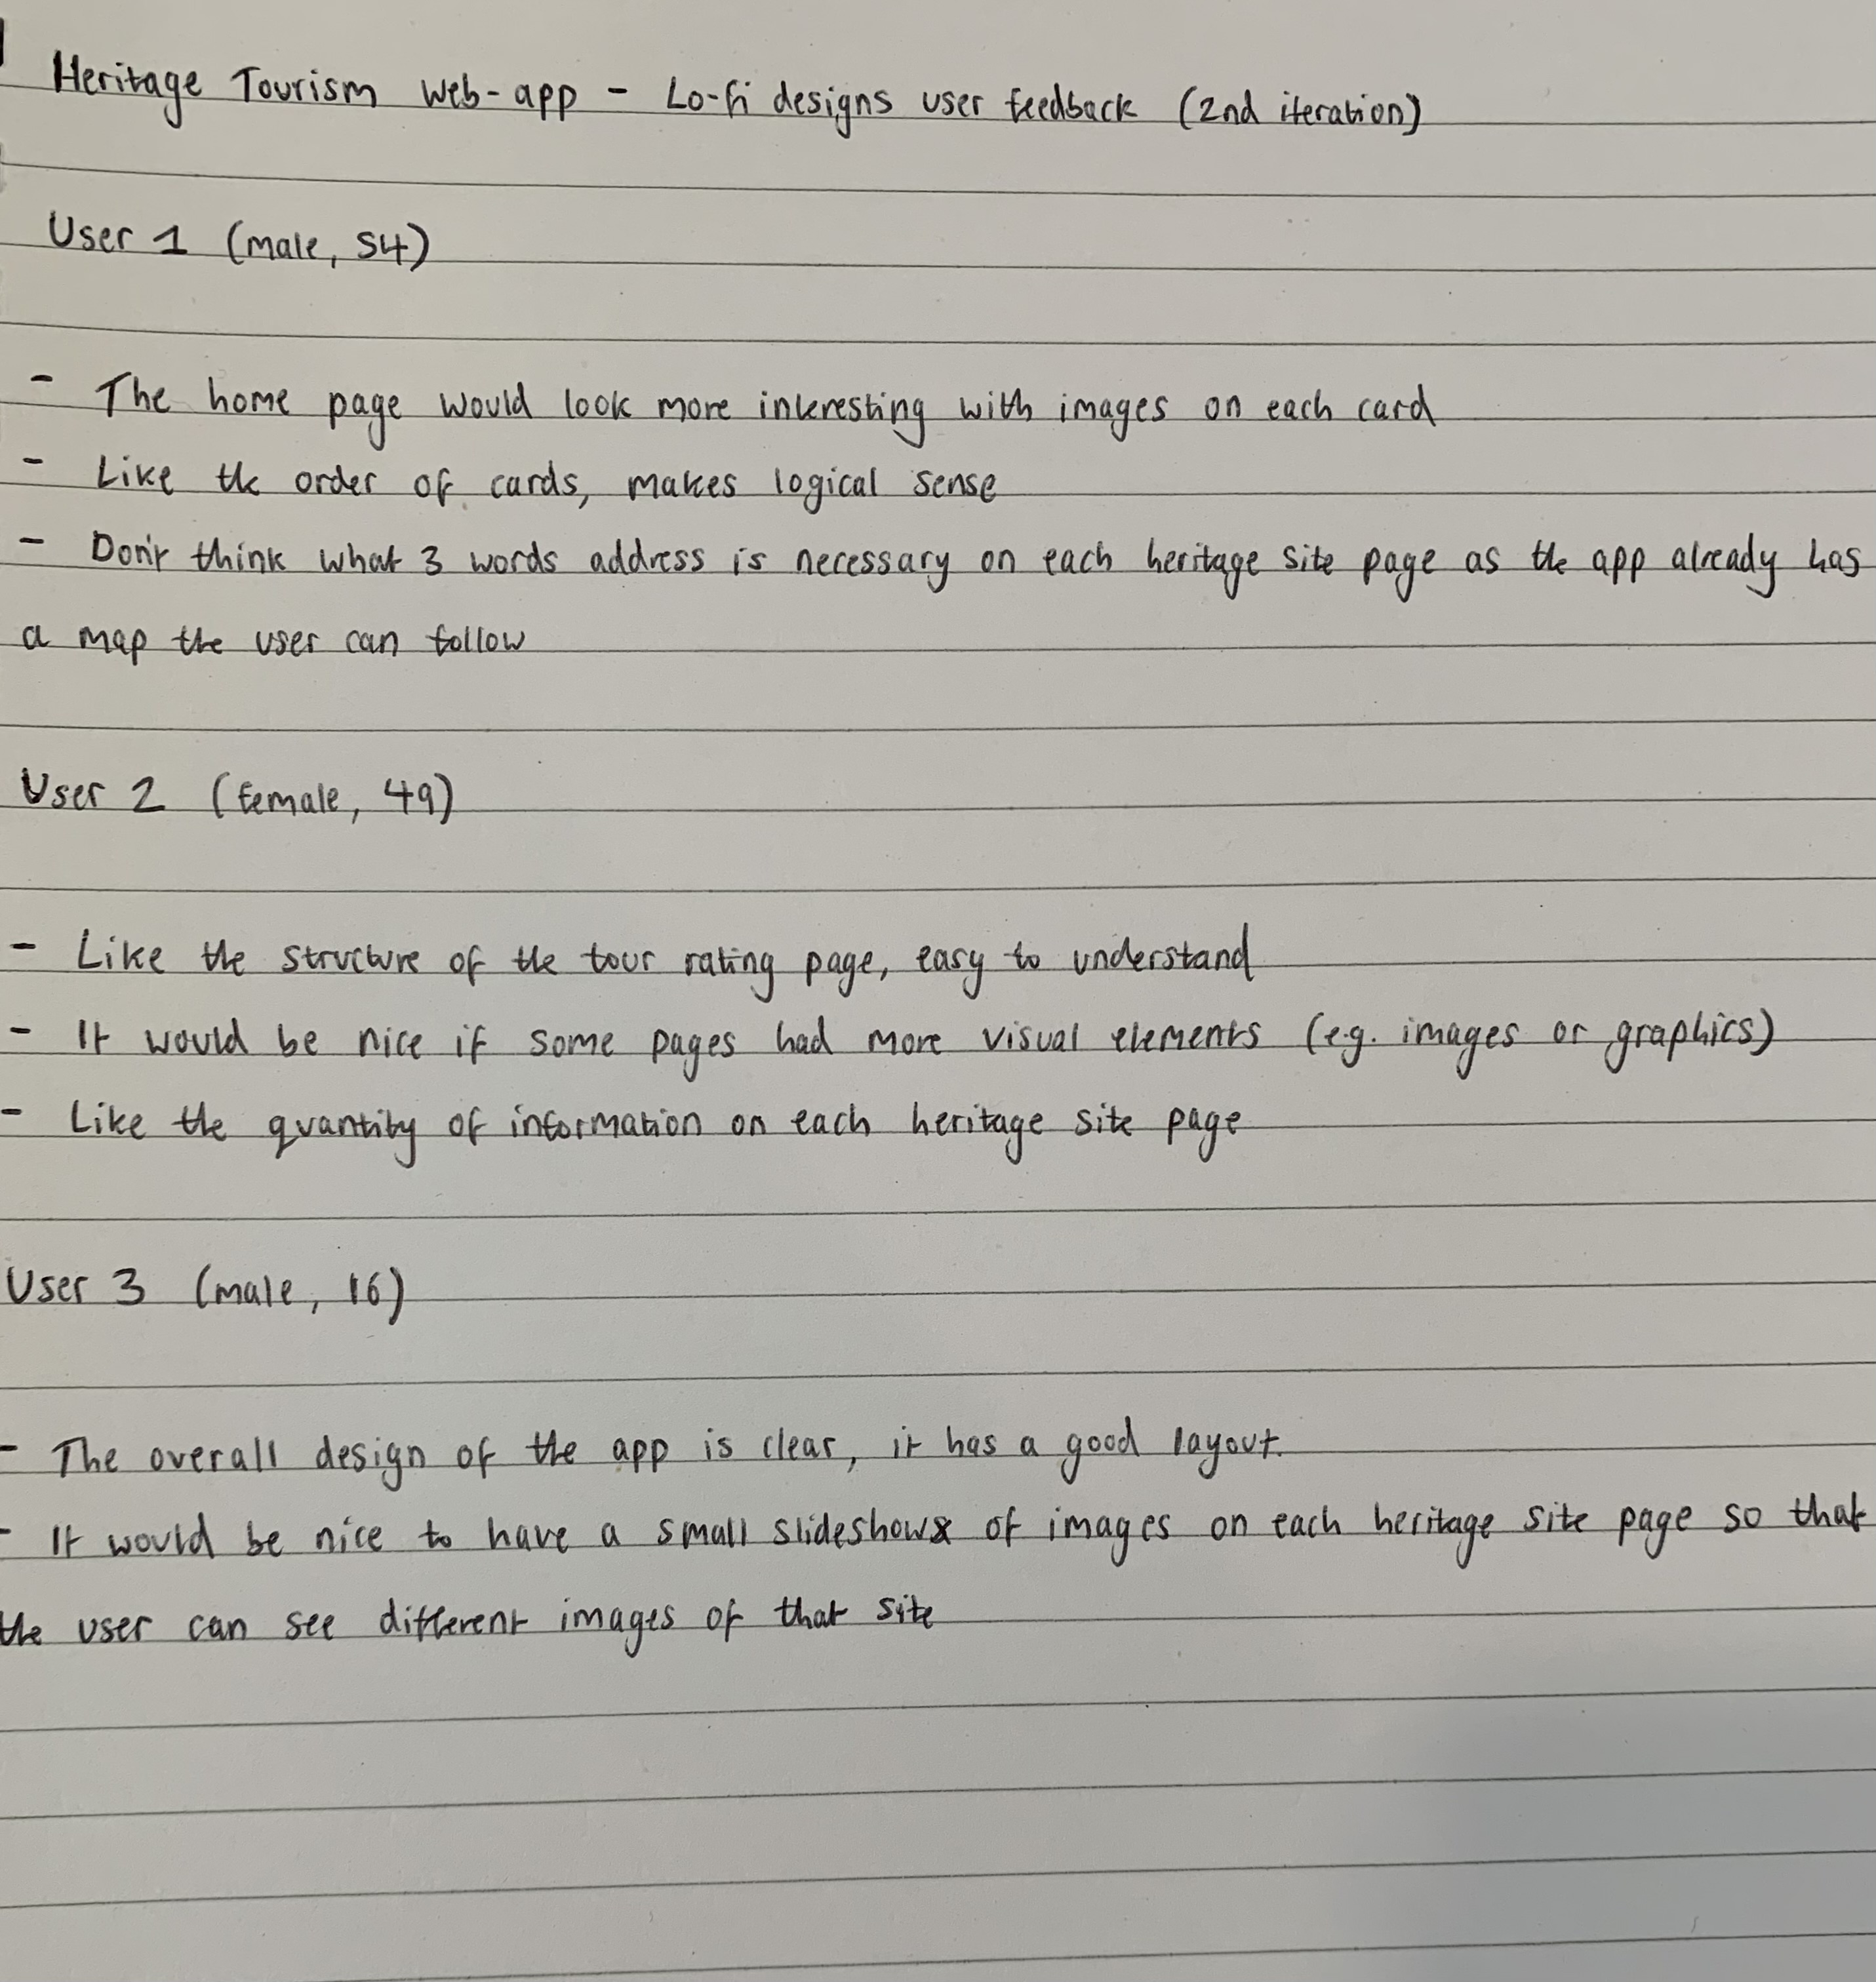 Heritage Tourism web-app - Lo-fi designs user feedback (2nd iteration)
User 1 (male, 54)
- The home page would look more interesting with images on each card
- Like the order of cards, makes logical sense
- Don't think what 3 words address is necessary on each heritage site page as the app already has
a map the user can follow
User 2 (female, 49)
- Like the structure of the tour rating page, easy to understand
- It would be nice if some pages had more visual elements (e.g. images or graphics)
- Like the quantity of information on each heritage site page
User 3 (male, 16)
- The overall design of the app is clear, it has a good layout.
- It would be nice to have a small slideshow of images on each heritage site page so that
the user can see different images of that site